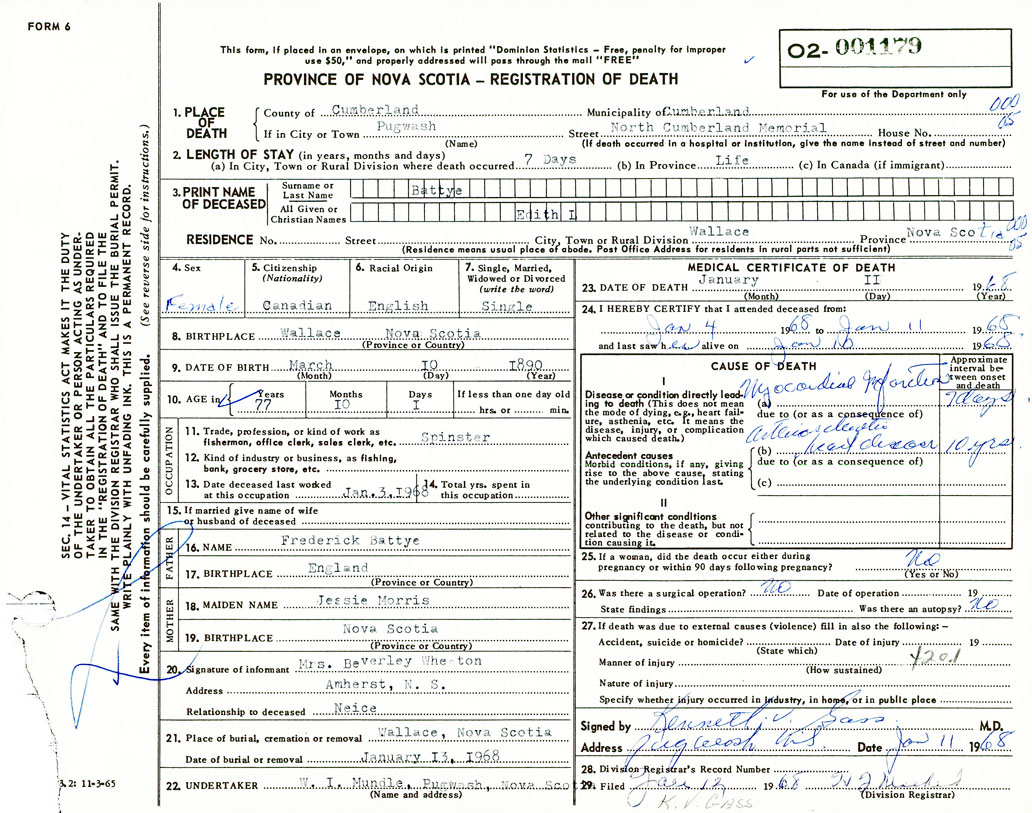 FORM 6
This form, if placed in an envelope, on which is printed "Dominion Statistics – Free, penalty for improper
use $50," and properly addressed will pass through the mail "FREE"
PROVINCE OF NOVA SCOTIA – REGISTRATION OF DEATH
O2- 001179
For use of the Department only
000
05
SEC. 14 – VITAL STATISTICS ACT MAKES IT THE DUTY
OF THE UNDERTAKER OR PERSON ACTING AS UNDER-
TAKER TO OBTAIN ALL THE PARTICULARS REQUIRED
IN THE "REGISTRATION OF DEATH" AND TO FILE THE
SAME WITH THE DIVISION REGISTRAR WHO SHALL ISSUE THE BURIAL PERMIT.
WRITE PLAINLY WITH UNFADING INK. THIS IS A PERMANENT RECORD.
Every item of information should be carefully supplied. (See reverse side for instructions.)
1. PLACE OF DEATH
County of Cumberland Municipality of Cumberland
If in City or Town Pugwash Street North Cumberland Memorial House No.
(Name) (If death occurred in a hospital or institution, give the name instead of street and number)
2. LENGTH OF STAY (in years, months and days)
(a) In City, Town or Rural Division where death occurred. 7 Days (b) In Province Life (c) In Canada (if immigrant)
3. PRINT NAME OF DECEASED
Surname or Last Name Battye
All Given or Christian Names Edith L
000
05
RESIDENCE No. Street City, Town or Rural Division Wallace Province Nova Scotia
(Residence means usual place of abode. Post Office Address for residents in rural parts not sufficient)
4. Sex Female
5. Citizenship (Nationality) Canadian
6. Racial Origin English
7. Single, Married, Widowed or Divorced (write the word) Single
8. BIRTHPLACE Wallace Nova Scotia
(Province or Country)
9. DATE OF BIRTH March IO I890
(Month) (Day) (Year)
10. AGE in Years 77 Months IO Days I If less than one day old hrs. or min.
OCCUPATION
11. Trade, profession, or kind of work as fisherman, office clerk, sales clerk, etc. Spinster
12. Kind of industry or business, as fishing, bank, grocery store, etc.
13. Date deceased last worked at this occupation Jan.3,I968
14. Total yrs. spent in this occupation
15. If married give name of wife or husband of deceased
FATHER
16. NAME Frederick Battye
17. BIRTHPLACE England
(Province or Country)
MOTHER
18. MAIDEN NAME Jessie Morris
19. BIRTHPLACE Nova Scotia
(Province or Country)
20. Signature of informant Mrs. Beverley Wheaton
Address Amherst, N. S.
Relationship to deceased Neice
21. Place of burial, cremation or removal Wallace, Nova Scotia
Date of burial or removal January I3, I968
22. UNDERTAKER W. I. Mundle, Pugwash, Nova Scot
(Name and address)
3.2: 11-3-65
MEDICAL CERTIFICATE OF DEATH
23. DATE OF DEATH January II 1968
(Month) (Day) (Year)
24. I HEREBY CERTIFY that I attended deceased from:
Jan 4 1968 to Jan 11 1968
and last saw her alive on Jan 10 1968
CAUSE OF DEATH
Approximate interval between onset and death
I
Disease or condition directly lead-
ing to death (This does not mean
the mode of dying, e.g., heart fail-
ure, asthenia, etc. It means the
disease, injury, or complication
which caused death.)
(a) Myocardial Infarction 7 days
due to (or as a consequence of)
Antecedent causes
Morbid conditions, if any, giving
rise to the above cause, stating
the underlying condition last.
(b) Arteriosclerotic heart disease 10 yrs.
due to (or as a consequence of)
(c)
II
Other significant conditions
contributing to the death, but not
related to the disease or condi-
tion causing it.
25. If a woman, did the death occur either during
pregnancy or within 90 days following pregnancy? No
(Yes or No)
26. Was there a surgical operation? No Date of operation 19
State findings Was there an autopsy? No
27. If death was due to external causes (violence) fill in also the following: –
Accident, suicide or homicide? Date of injury 19
(State which)
Manner of injury 4201
(How sustained)
Nature of injury
Specify whether injury occurred in industry, in home, or in public place
Signed by Kenneth V. Gass M.D.
Address Pugwash N.S. Date Jan 11 1968
28. Division Registrar's Record Number
29. Filed Jan 12 1968
(Division Registrar)
K.V. GASS